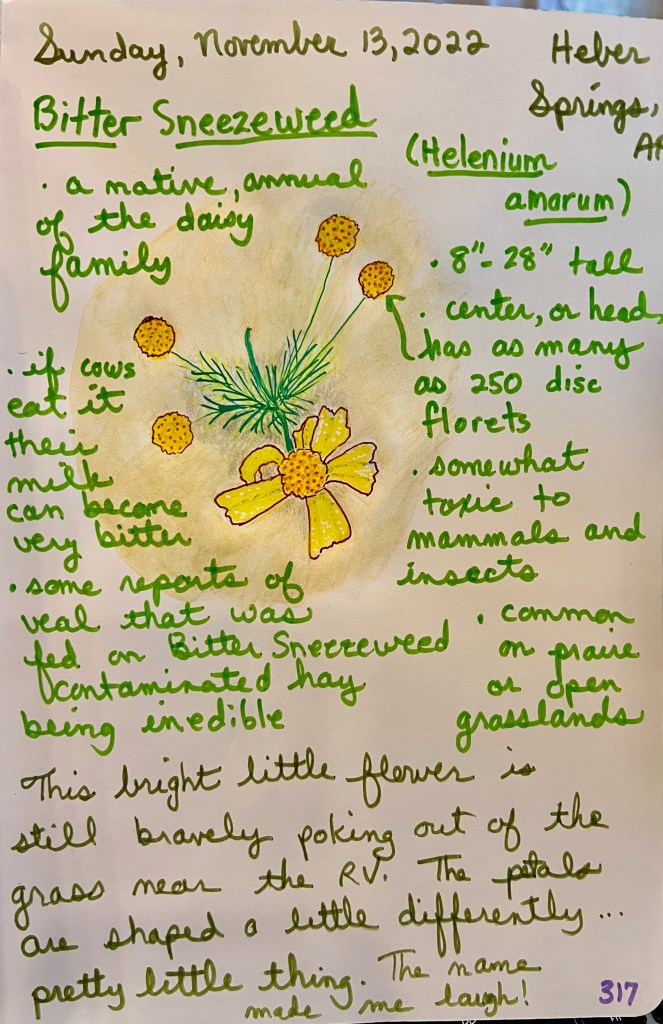 Sunday, November 13, 2022
Heber
Springs,
AR
Bitter Sneezeweed
(Helenium
amarum)
· a native, annual
of the daisy
family
· 8"- 28" tall
· center, or head,
has as many
as 250 disc
florets
· if cows
eat it
their
milk
can become
very bitter
· somewhat
toxic to
mammals and
insects
· some reports of
veal that was
fed on Bitter Sneezeweed
contaminated hay
being inedible
· common
on praire
or open
grasslands
This bright little flower is
still bravely poking out of the
grass near the RV. The petals
are shaped a little differently...
pretty little thing. The name
made me laugh!
317